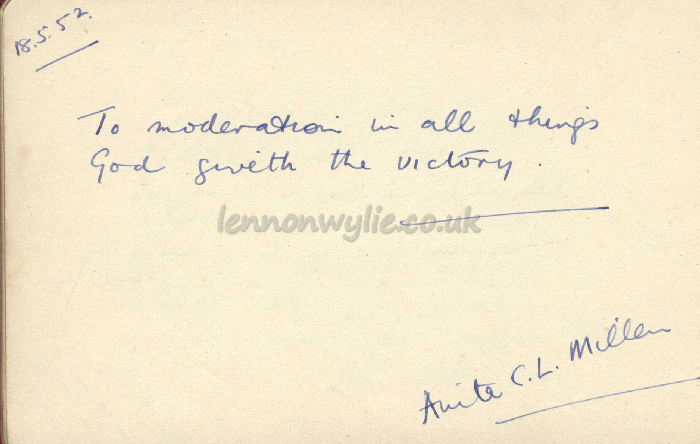 18.5.52.
To moderation in all things
God giveth the victory.
lennonwylie.co.uk
Anita C.L. Millen